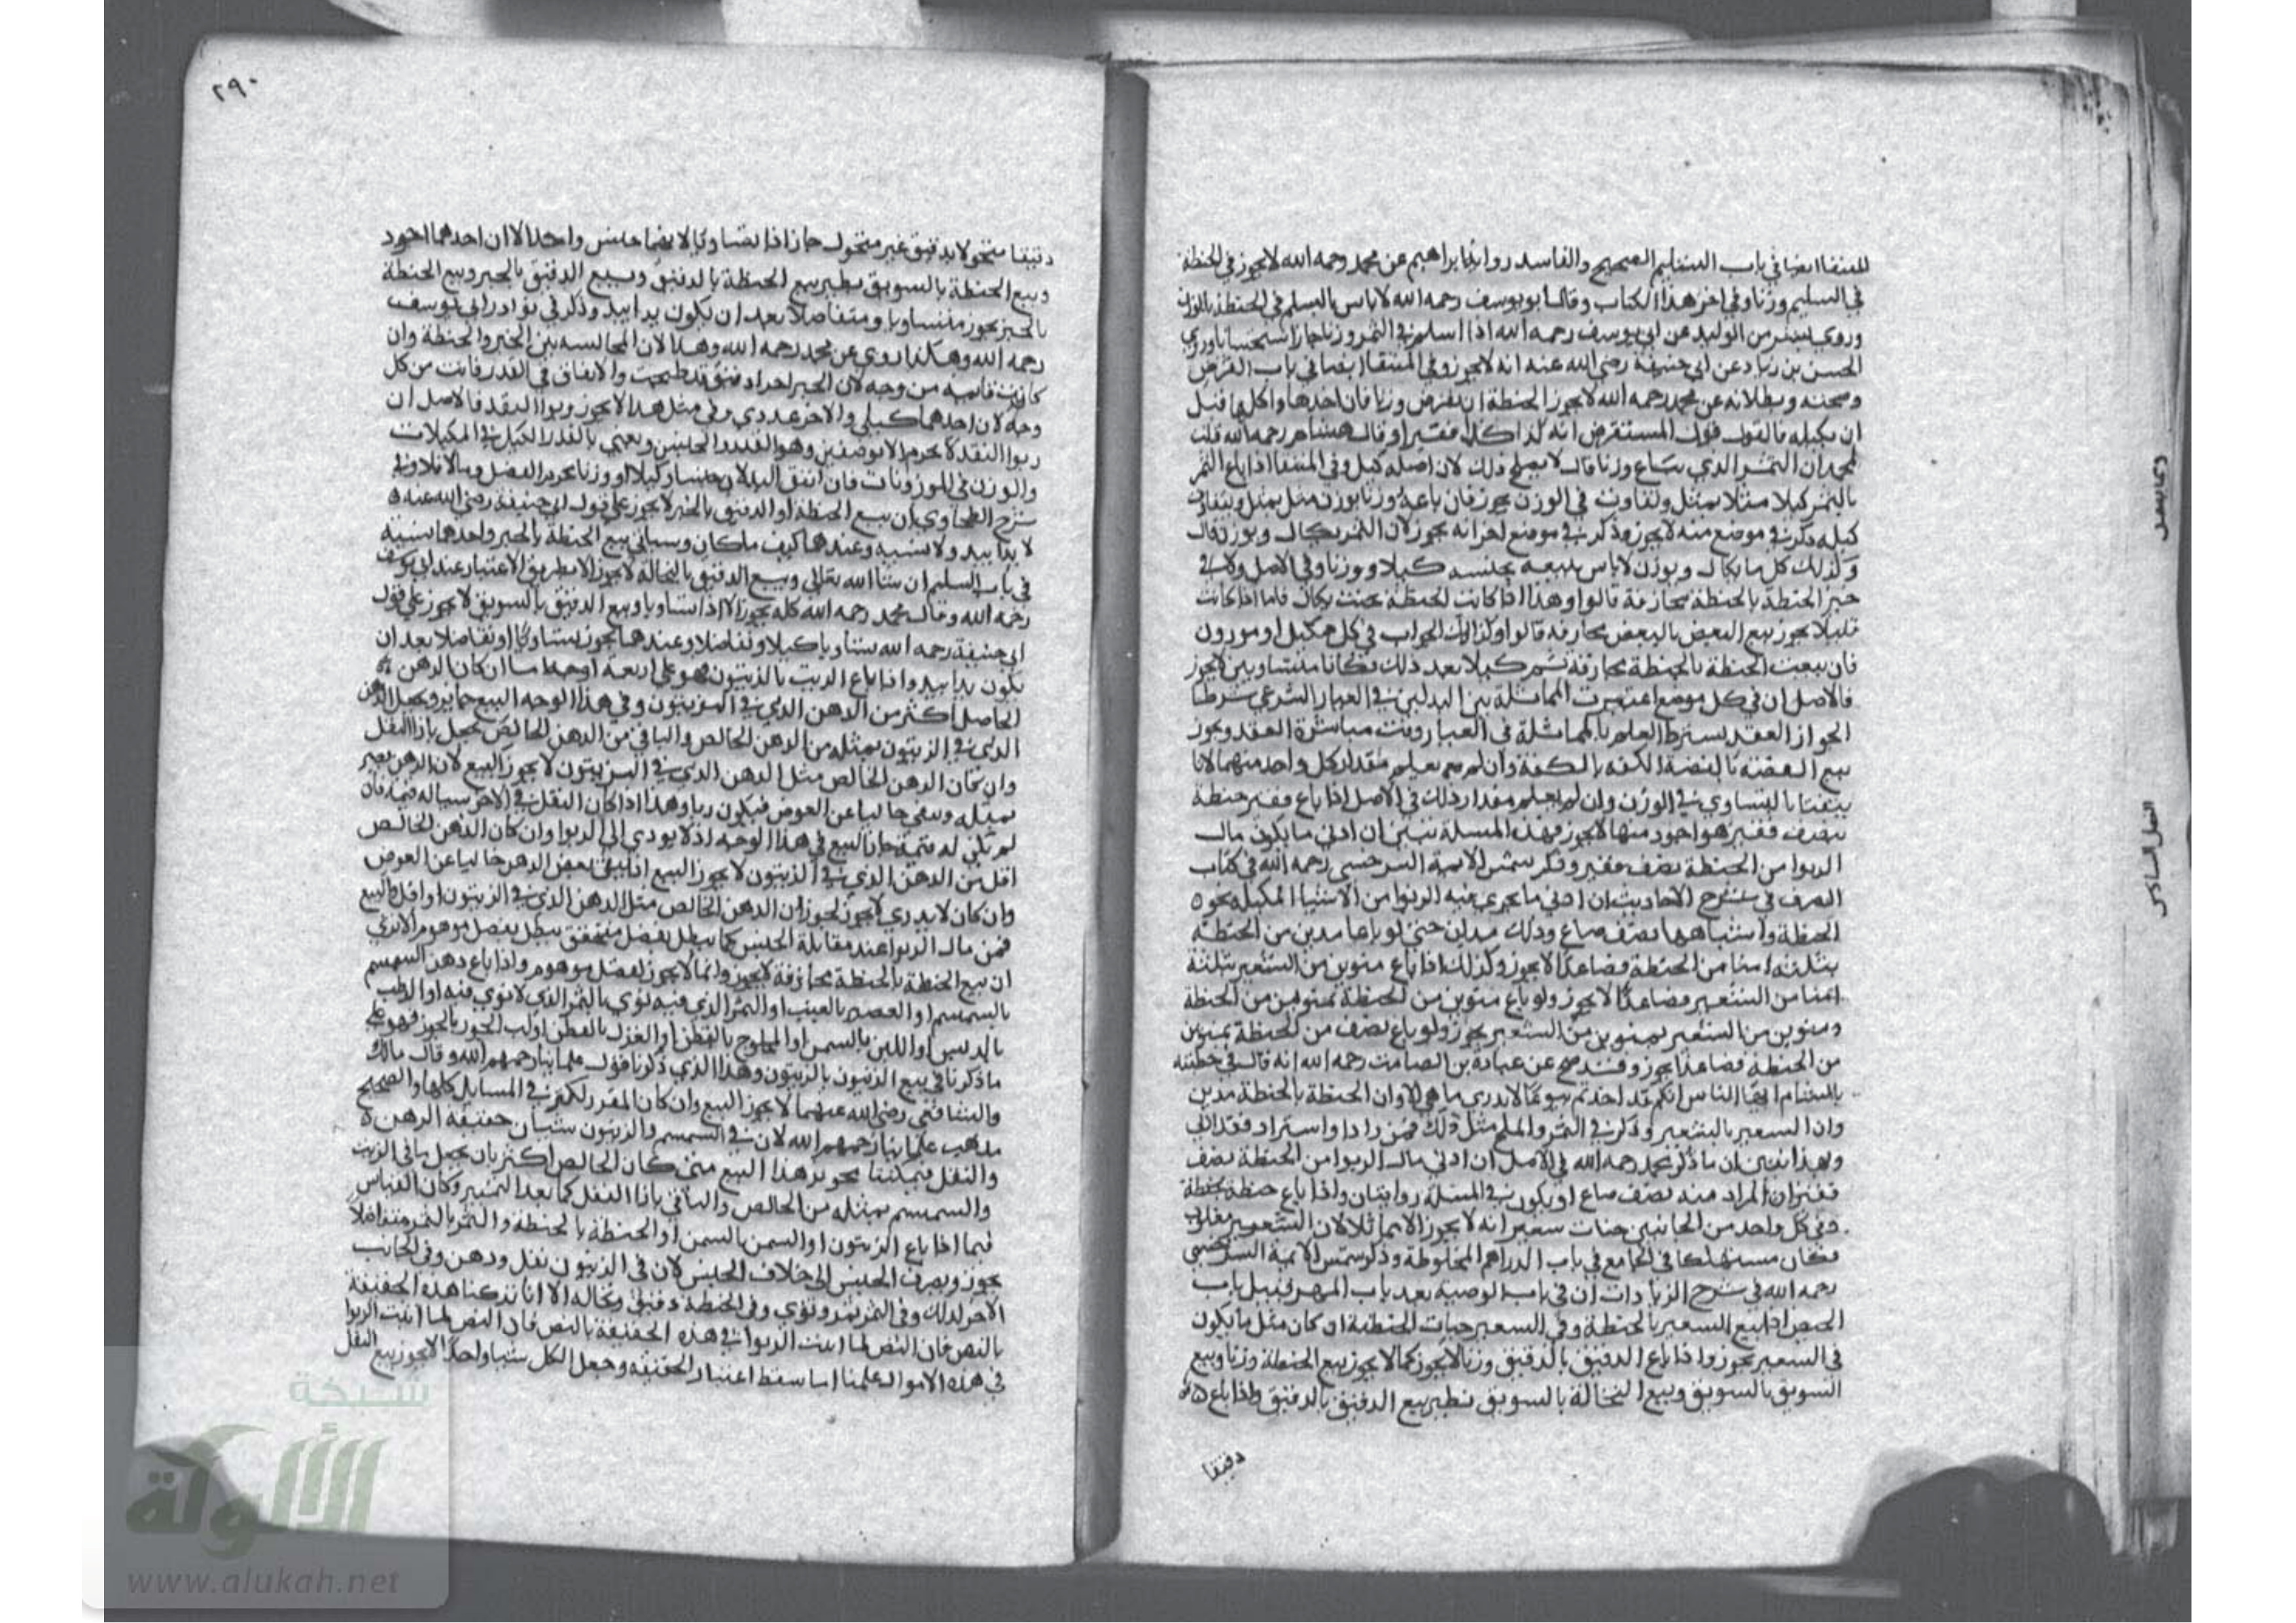 للمنتقا ايضا في باب التسليم الصحيح والفاسد رواية ابراهيم عن محمد رحمه الله لا يجوز في الحنطة
في السليم وزنا وفي اخر هذا الكتاب وقال ابو يوسف رحمه الله لا باس بالسلم في الحنطة بالوزن
وروى بشر بن الوليد عن ابي يوسف رحمه الله اذا اسلم في التمر وزنا جاز استحسانا وروي
الحسن بن زياد عن ابي حنيفة رضي الله عنه انه لا يجوز وفي المنتقا ايضا في باب القرض
وصحته وبطلانه عن محمد رحمه الله لا يجوز الحنطة ان يقرض وزنا فان اخذها واكلها قبل
ان يكيله فالقول قول المستقرض انه كذا كذا قفيزا وقال هشام رحمه الله قلت
لمحمد ان التمر الذي يباع وزنا قال لا يصلح ذلك لان اصله كيل وفي المنتقا اذا باع التمر
بالتمر كيلا مثلا بمثل وتفاوت في الوزن يجوز فان باعه وزنا بوزن مثل بمثل وتفاوت
كيله ذكر في موضع منه لا يجوز وذكر في موضع اخر انه يجوز لان التمر يكال ويوزن قال
وكذلك كل ما يكال ويوزن لا باس ببيعه بجنسه كيلا ووزنا وفي الاصل ولا في
خير الحنطة بالحنطة مجازفة قالوا وهذا اذا كانت الحنطة بحيث يكال فاما اذا كانت
قليلا يجوز بيع البعض بالبعض مجازفة قالوا وكذلك الجواب في كل مكيل او موزون
فان بيعت الحنطة بالحنطة مجازفة ثم كيلا بعد ذلك فكانا متساويين لا يجوز
فالاصل ان في كل موضع اعتبرت المماثلة بين البدلين في العيار الشرعي شرطا
الجواز العقد يشترط العلم بالمماثلة في العيار وقت مباشرة العقد ويجوز
بيع الفضة بالفضة الكفة بالكفة وان لم يعلم مقدار كل واحد منهما لانا
تيقنا بالتساوي في الوزن وان لم يعلم مقدار ذلك في الاصل اذا باع قفيز حنطة
بنصف قفيز هو اجود منها لا يجوز فهذه المسلة تبين ان ادنى ما يكون مال
الربوا من الحنطة نصف قفيز وذكر شمس الايمة السرخسي رحمه الله في كتاب
الصرف في شرح الاحاديث ان ادنى ما يجري فيه الربوا من الاشيا المكيلة نحو
الحنطة واشباهها نصف صاع وذلك مدان حتى لو باعا مدين من الحنطة
بثلثة امنا من الحنطة فصاعدا لا يجوز وكذلك اذا باع منوين من الشعير بثلثة
امنا من الشعير فصاعدا لا يجوز ولو باع منوين من الحنطة بمنوين من الحنطة
ومنوين من الشعير بمنوين من الشعير يجوز ولو باع نصف من الحنطة بمنوين
من الحنطة فصاعدا يجوز وقد صح عن عبادة بن الصامت رحمه الله انه قال في خطبته
بالشام ايها الناس انكم قد احدثتم بيوعا لا يدرى ما هي الا وان الحنطة بالحنطة مدين
وان الشعير بالشعير وذكر في التمر والملح مثل ذلك فمن زاد او استزاد فقد اربى
وبهذا تبين ان ما ذكر محمد رحمه الله في الاصل ان ادنى مال الربوا من الحنطة نصف
قفيز ان المراد منه نصف صاع او يكون في المسلة روايتان واذا باع حنطة بحنطة
وفي كل واحد من الجانبين حبات شعير انه لا يجوز الا مماثلا لان الشعير مغلوب
فكان مستهلكا في الجامع في باب الدراهم المخلوطة وذكر شمس الايمة السرخسي
رحمه الله في شرح الزيادات ان في باب الوصية بعد باب المهر قبيل باب
الحيض اذا بيع الشعير بالحنطة وفي الشعير حبات الحنطة ان كان مثل ما يكون
في الشعير يجوز واذا باع الدقيق بالدقيق وزنا لا يجوز كما لا يجوز بيع الحنطة وزنا وبيع
السويق بالسويق وبيع النخالة بالسويق نظير بيع الدقيق بالدقيق واذا باع
دقيقا
وكما يعتبر
النقل السادس
٢٩٠
دقيقا منخولا بدقيق غير منخول جاز اذا تساويا لانهما جنس واحد الا ان احدهما اجود
وبيع الحنطة بالسويق نظير بيع الحنطة بالدقيق وبيع الدقيق بالخبز وبيع الحنطة
بالخبز يجوز متساويا ومتفاضلا بعد ان يكون يدا بيد وذكر في نوادر ابي يوسف
رحمه الله وهكذا روي عن محمد رحمه الله وهذا لان المجانسة بين الخبز والحنطة وان
كانت قايمة من وجه لان الخبز اجزاء دقيق قد طبخت والاتفاق في القدر فاتت من كل
وجه لان احدهما كيلي والاخر عددي وفي مثل هذا لا يجوز ربوا النقد فالاصل ان
ربوا النقد لا يحرم الا بوصفين وهو القدر والجنس ونعني بالقدر الكيل في المكيلات
والوزن في الموزونات فان اتفق البدلان جنسا وكيلا او وزنا يحرم الفضل ومالا فلا وفي
شرح الطحاوي ان بيع الحنطة او الدقيق بالخبز لا يجوز على قول ابي حنيفة رضي الله عنه
لا يدا بيد ولا نسية وعندهما كيف ما كان وسياتي بيع الحنطة بالخبز واحدهما نسية
في باب السلم ان شاء الله تعالى وبيع الدقيق بالنخالة لا يجوز الا بطريق الاعتبار عند ابي يوسف
رحمه الله وقال محمد رحمه الله كله يجوز الا اذا تساويا وبيع الدقيق بالسويق لا يجوز على قول
ابي حنيفة رحمه الله متساويا كيلا ومتفاضلا وعندهما يجوز متساويا او متفاضلا بعد ان
يكون يدا بيد واذا باع الزيت بالزيتون فهو على اربعة اوجه اما ان كان الدهن
الحاصل اكثر من الدهن الذي في الزيتون وفي هذا الوجه البيع جايز ويجعل الدهن
الذي في الزيتون بمثله من الدهن الخالص والباقي من الدهن الخالص يجعل بازا الثفل
وان كان الدهن الخالص مثل الدهن الذي في الزيتون لا يجوز البيع لان الدهن يصير
بمثله وبقي خاليا عن العوض فيكون ربا وهذا اذا كان الثفل في الاخر شيا له قيمة فان
لم تكن له قيمة جاز البيع في هذا الوجه اذ لا يودي الى الربوا وان كان الدهن الخالص
اقل من الدهن الذي في الزيتون لا يجوز البيع اذا يبقى بعض الدهن خاليا عن العوض
وان كان لا يدري لا يجوز لجواز ان الدهن الخالص مثل الدهن الذي في الزيتون او اقل والبيع
فمن مال الربوا عند مقابلة الجنس كما يبطل بفضل متحقق يبطل بفضل موهوم الا ترى
ان بيع الحنطة بالحنطة مجازفة لا يجوز وانما لا يجوز لفضل موهوم واذا باع دهن السمسم
بالسمسم او العصير بالعنب او التمر الذي فيه نوى بالتمر الذي لا نوى فيه او الرطب
بالدبس او اللبن بالسمن او المحلوج بالقطن او الغزل بالقطن او لب الجوز بالجوز فهو على
ما ذكرنا في بيع الزيتون بالزيتون وهذا الذي ذكرنا قول علماينا رحمهم الله وقال مالك
والشافعي رضي الله عنهما لا يجوز البيع وان كان المفرد اكثر في المسايل كلها والصحيح
مذهب علماينا رحمهم الله لان في السمسم والزيتون شيان حقيقة الدهن
والثفل فيمكننا تجويز هذا البيع متى كان الخالص اكثر بان يجعل ما في الزيت
والسمسم بمثله من الخالص والباقي بازا الثفل كما بعد التمييز وكان القياس
فيما اذا باع الزيتون او السمن بالسمن او الحنطة بالحنطة والتمر بالتمر متفاضلا
يجوز ويصرف الجنس الى خلاف الجنس لان في الزيتون ثفل ودهن وفي الجانب
الاخر كذلك وفي التمر تمر ونوى وفي الحنطة دقيق ونخالة الا انا تركنا هذه الحقيقة
بالنص فان النص لما اثبت الربوا في هذه الحقيقة بالنص فان النص لما اثبت الربوا
في هذه الاموال علمنا انما سقط اعتبار الحقيقة وجعل الكل شيا واحدا لا يجوز بيع الثفل
شبكة
الألوكة
www.alukah.net